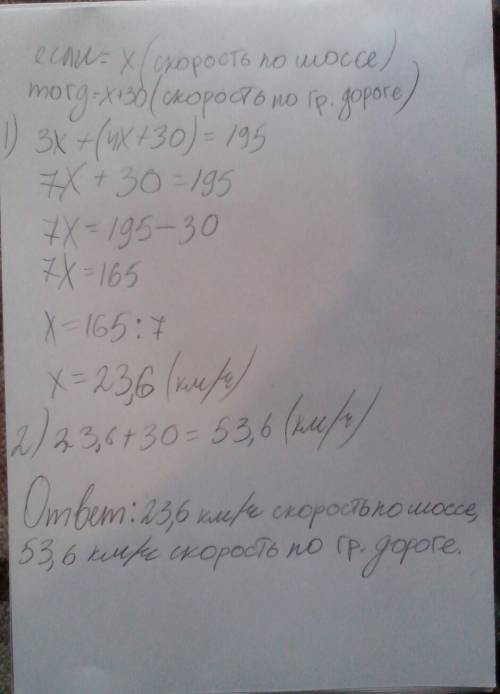 если = x (скорость по шоссе)
тогд = x+30 (скорость по гр. дороге)
1) 3x + (4x + 30) = 195
7x + 30 = 195
7x = 195 - 30
7x = 165
x = 165 : 7
x = 23,6 (км/ч)
2) 23,6 + 30 = 53,6 (км/ч)
Ответ: 23,6 км/ч скорость по шоссе,
53,6 км/ч скорость по гр. дороге.